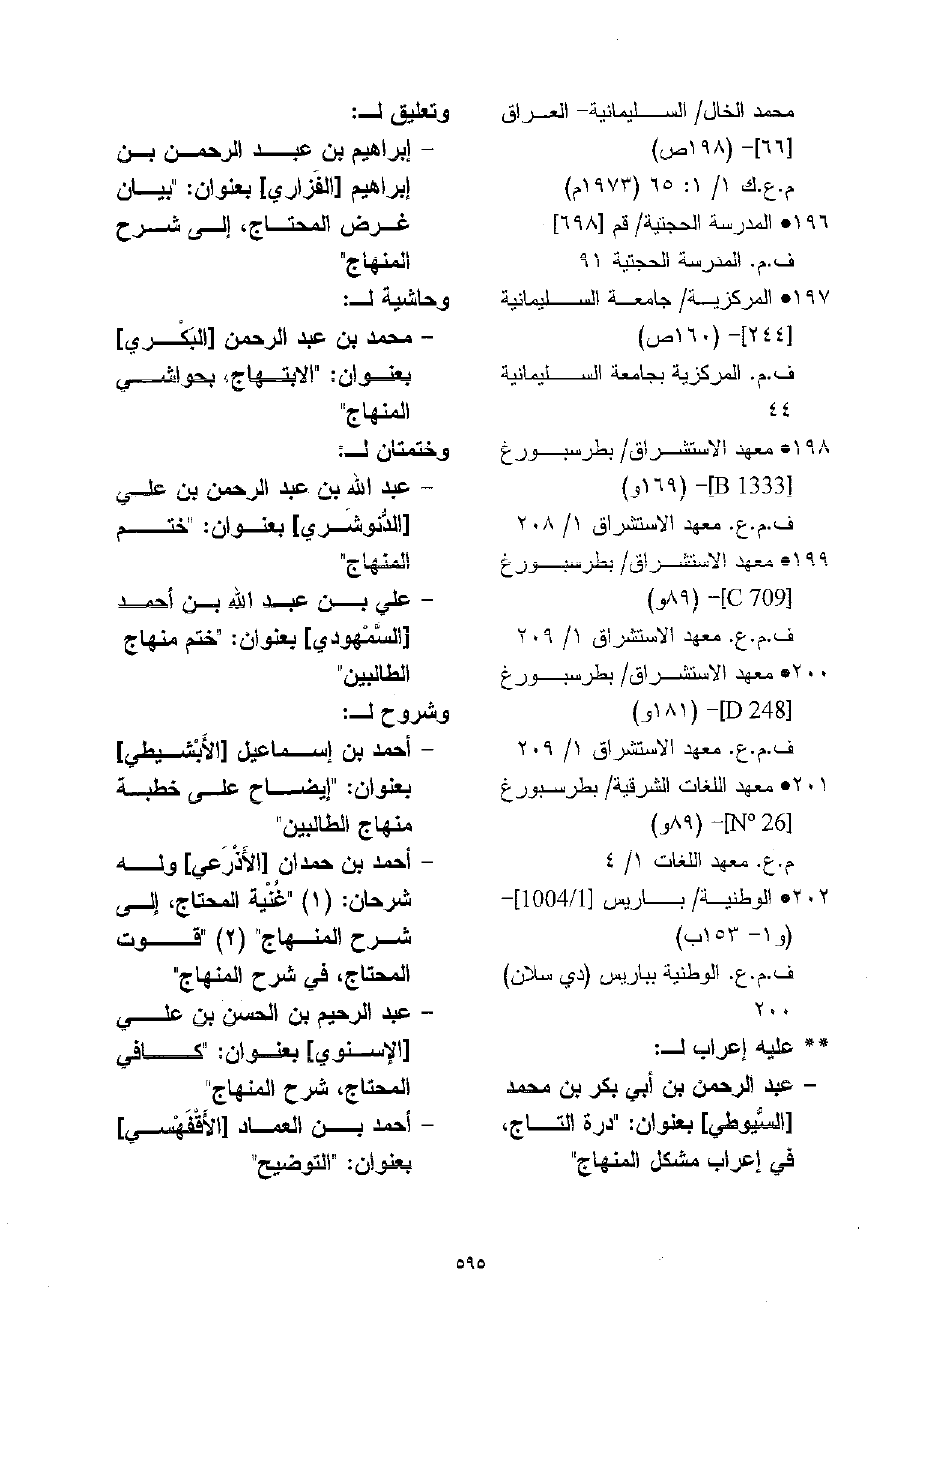 محمد الخال/ السليمانية- العراق
[٦٦]- (١٩٨ص)
م.ع.ك ١/ ١: ٦٥ (١٩٧٣م)
١٩٦• المدرسة الحجتية/ قم [٦٩٨]
ف.م. المدرسة الحجتية ٩١
١٩٧• المركزية/ جامعة السليمانية
[٢٤٤]- (١٦٠ص)
ف.م. المركزية بجامعة السليمانية
٤٤
١٩٨• معهد الاستشراق/ بطرسبورغ
[B 1333]- (١٦٩و)
ف.م.ع. معهد الاستشراق ١/ ٢٠٨
١٩٩• معهد الاستشراق/ بطرسبورغ
[C 709]- (٨٩و)
ف.م.ع. معهد الاستشراق ١/ ٢٠٩
٢٠٠• معهد الاستشراق/ بطرسبورغ
[D 248]- (١٨١و)
ف.م.ع. معهد الاستشراق ١/ ٢٠٩
٢٠١• معهد اللغات الشرقية/ بطرسبورغ
[Nº 26]- (٨٩و)
م.ع. معهد اللغات ١/ ٤
٢٠٢• الوطنية/ باريس [1004/1]-
(و١- ١٥٣ب)
ف.م.ع. الوطنية بباريس (دي سلان)
٢٠٠
** عليه إعراب لـ:
- عبد الرحمن بن أبي بكر بن محمد
[السُّيوطي] بعنوان: "درة التاج،
في إعراب مشكل المنهاج"
وتعليق لـ:
- إبراهيم بن عبد الرحمن بن
إبراهيم [الفَزاري] بعنوان: "بيان
غرض المحتاج، إلى شرح
المنهاج"
وحاشية لـ:
- محمد بن عبد الرحمن [البَكْري]
بعنوان: "الابتهاج، بحواشي
المنهاج"
وختمتان لـ:
- عبد الله بن عبد الرحمن بن علي
[الدُّنوشَري] بعنوان: "ختم
المنهاج"
- علي بن عبد الله بن أحمد
[السَّمْهودي] بعنوان: "ختم منهاج
الطالبين"
وشروح لـ:
- أحمد بن إسماعيل [الأبْشيطي]
بعنوان: "إيضاح على خطبة
منهاج الطالبين"
- أحمد بن حمدان [الأذْرَعي] وله
شرحان: (١) "غُنْية المحتاج، إلى
شرح المنهاج" (٢) "قوت
المحتاج، في شرح المنهاج"
- عبد الرحيم بن الحسن بن علي
[الإسنوي] بعنوان: "كافي
المحتاج، شرح المنهاج"
- أحمد بن العماد [الأقْفَهْسي]
بعنوان: "التوضيح"
٥٩٥